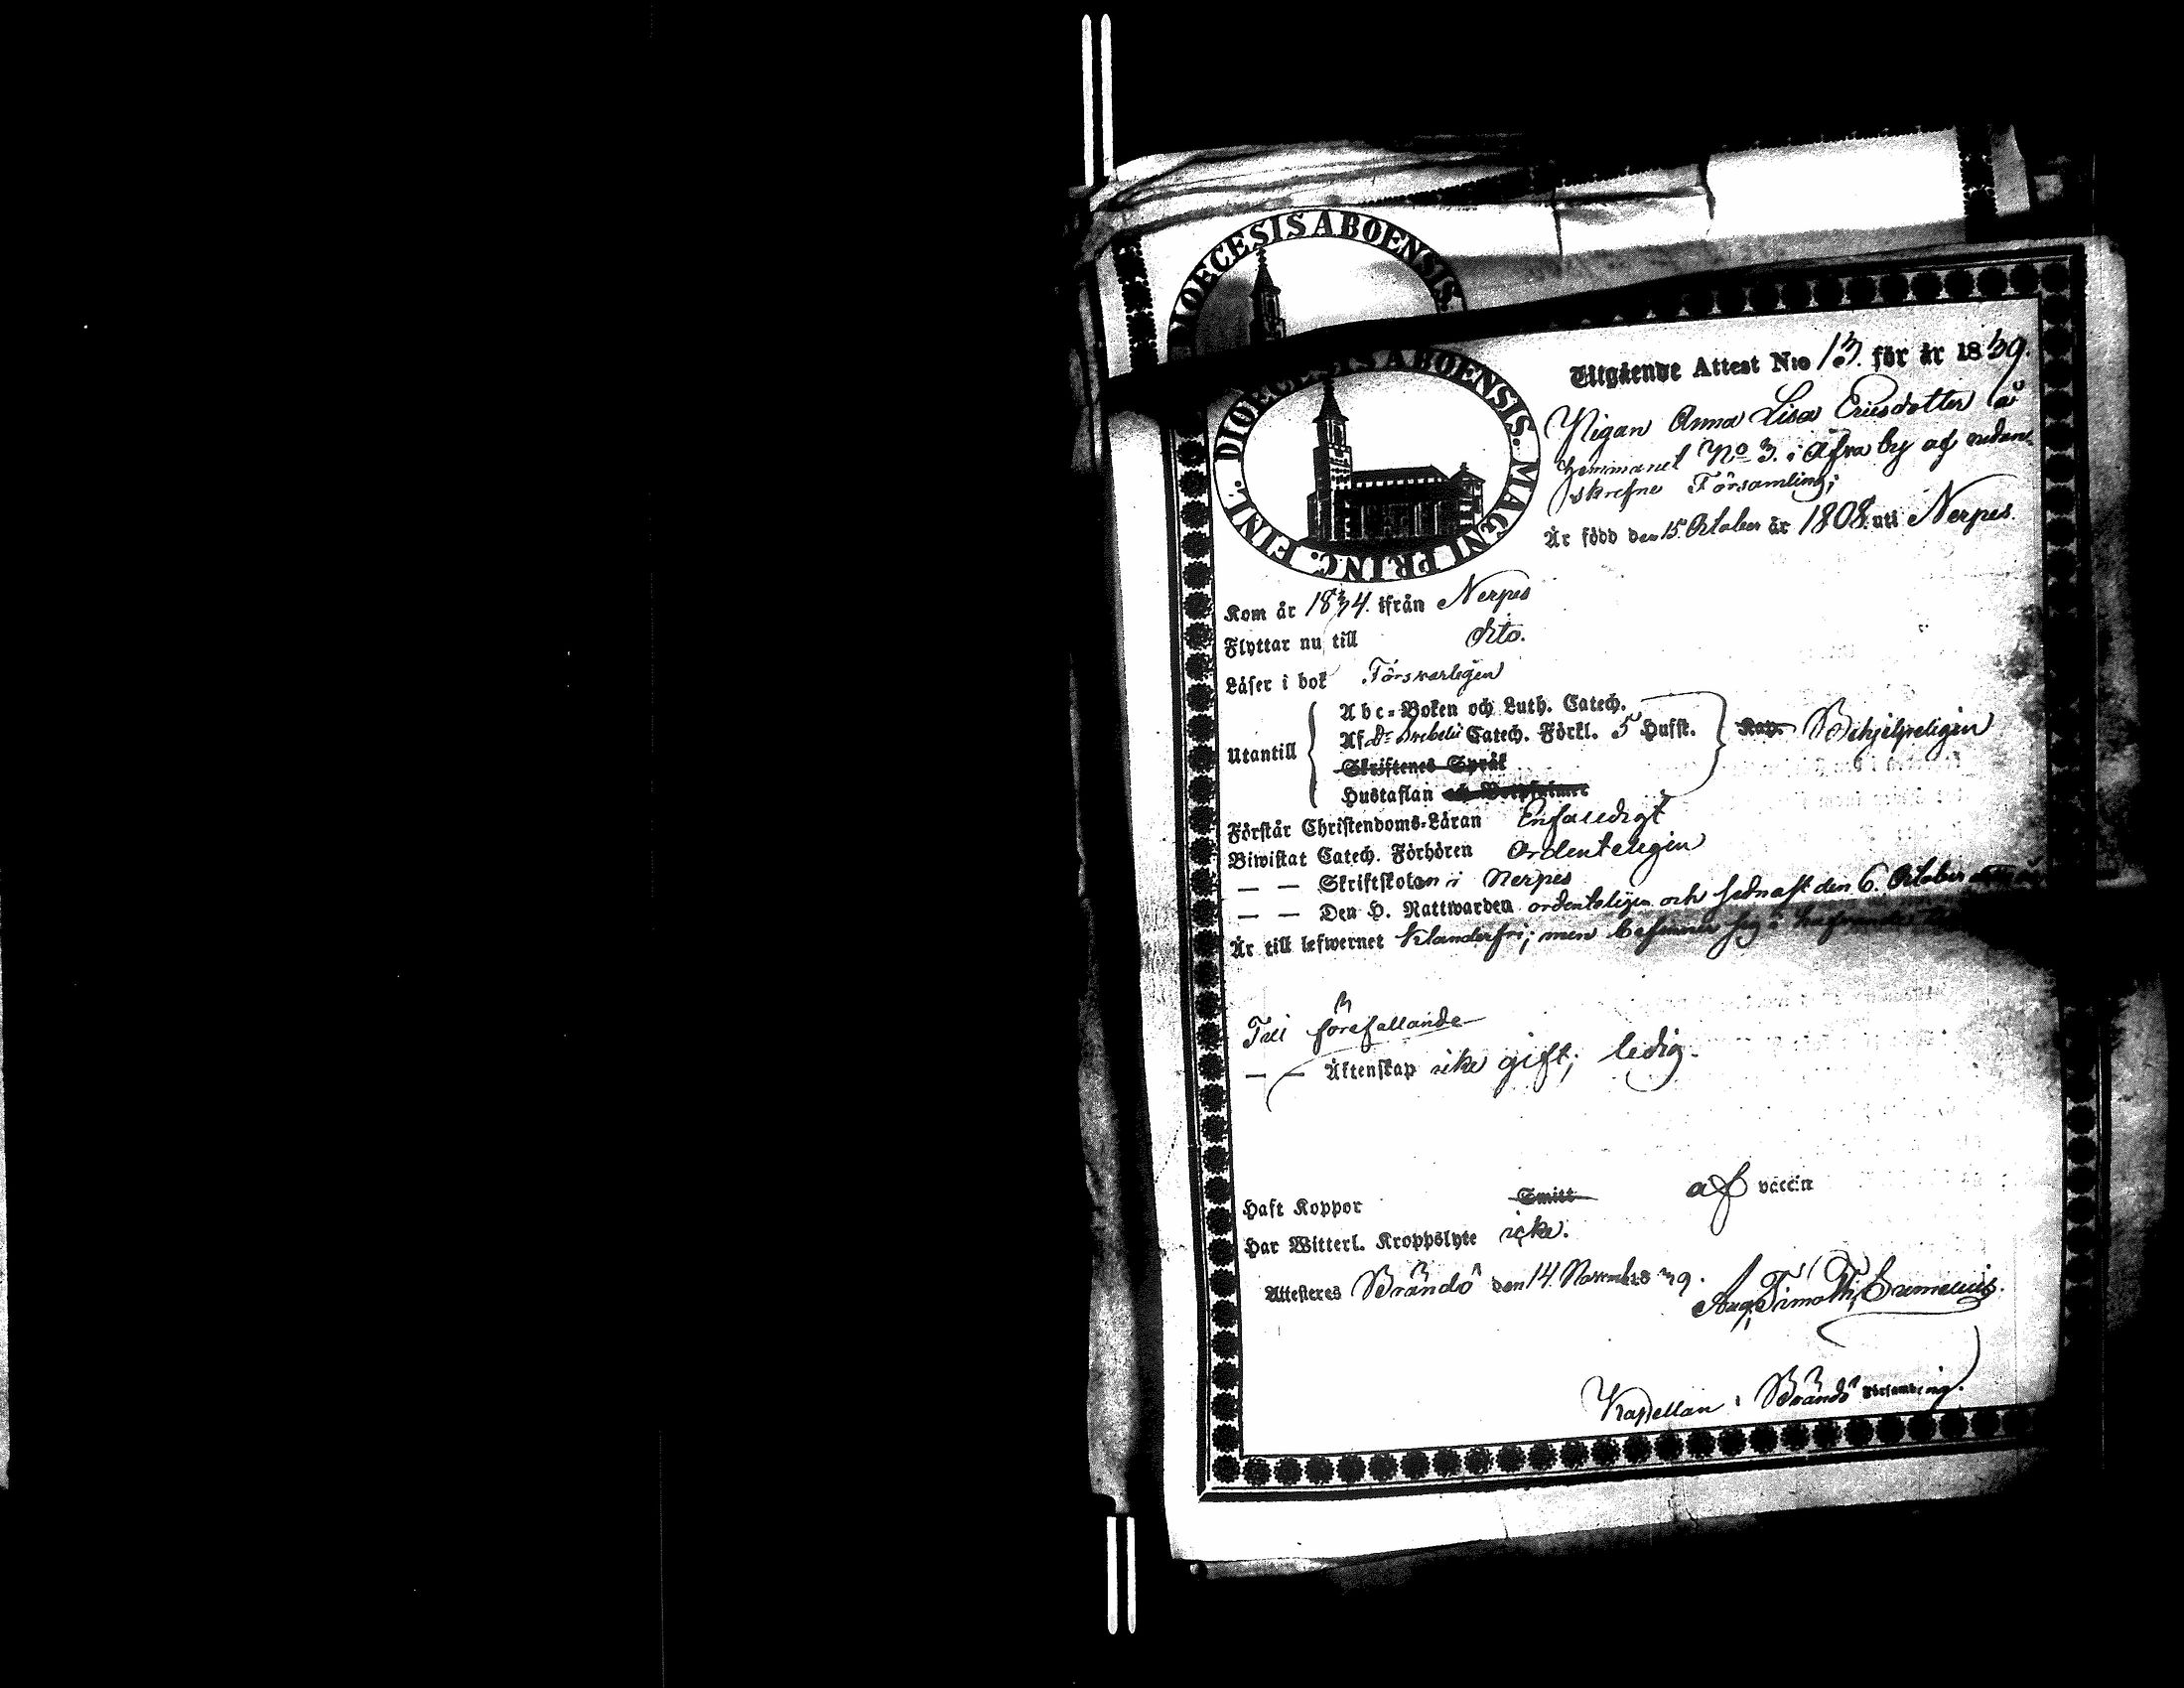 DIOECESIS ABOENSIS.
DIOECESIS ABOENSIS. MAGNI PRINC. FINL.
Utgående Attest N:o 13. för år 1839.
Pigan Anna Lisa Ericsdotter å
hemmanet No 3. i Åfva by af nedan-
skrefne Församling;
Är född den 15. October år 1808. uti Nerpes.
Kom år 1834. ifrån Nerpes
Flyttar nu till dito.
Läser i bok Försvarligen
Utantill
Abc-Boken och Luth. Catech.
Af Dr Svebelii Catech. Förkl. 5 Hufst.
Skriftenes Språk
Hustaflan och
Behjelpeligen
Förstår Christendoms-Läran Enfaldigt
Biwistat Catech. Förhören Ordenteligen
— — Skriftskolan i Nerpes
— — Den H. Nattwarden ordenteligen och sednast den 6. October
Är till lefwernet Klanderfri; men befinner sig i
Till förefallande
— — Äktenskap icke gift; ledig.
Haft Koppor Smitt af vaccin
Har Witterl. Kroppslyte icke.
Attesteres Brändö den 14. November 1839.
Aug. Timoth.
Kapellan i Brändö Församling.